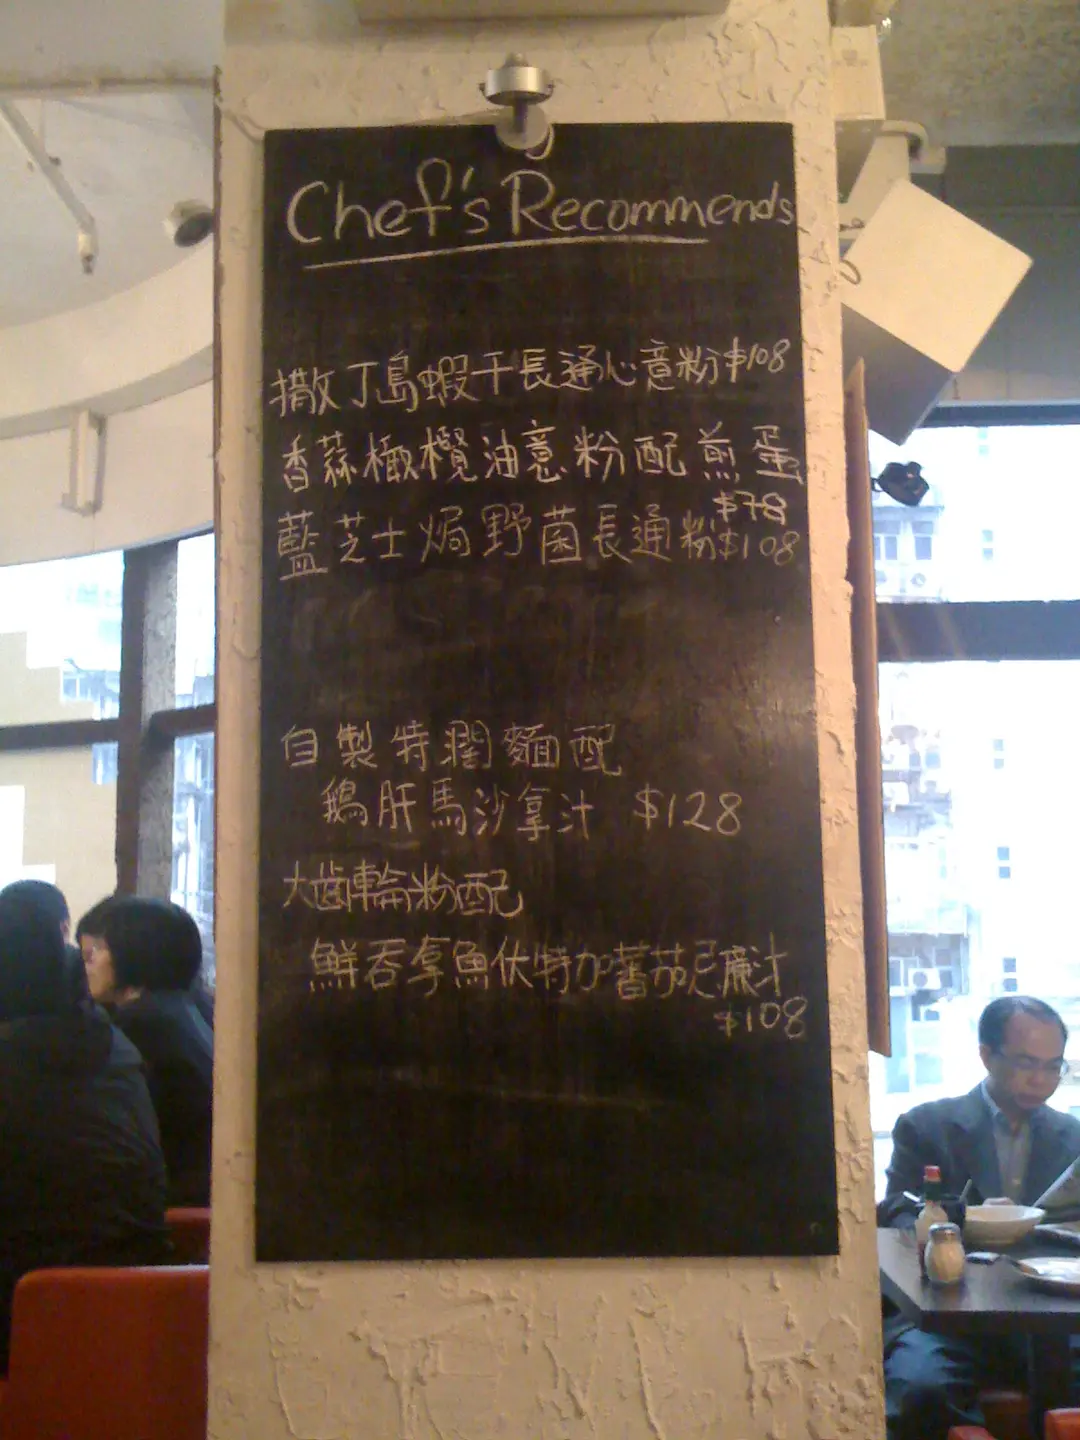 Chef's Recommends
撒丁島蝦干長通心意粉$108
香蒜橄欖油意粉配煎蛋
$78
藍芝士焗野菌長通粉$108
自製特濶麵配
鵝肝馬沙拿汁 $128
大齒輪粉配
鮮吞拿魚伏特加蕃茄忌廉汁
$108